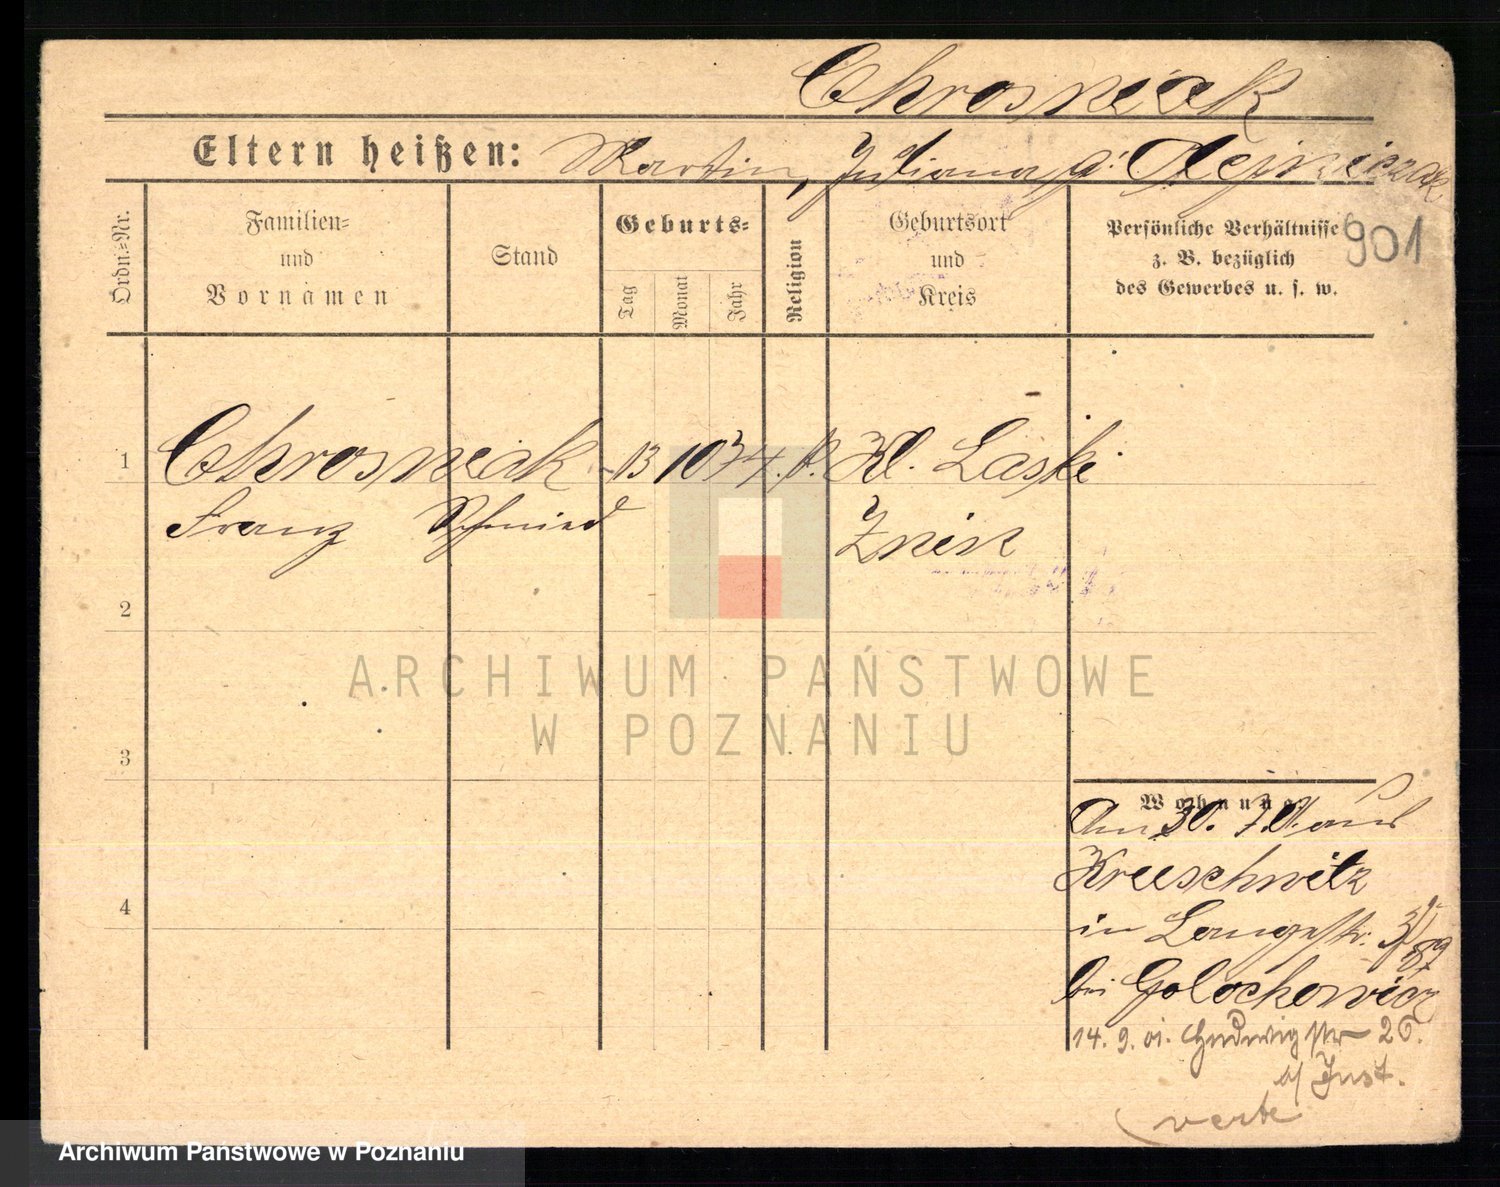 Chrosniak
Eltern heißen: Martin, Juliana g. Olejniczak
901
Ordn.-Nr.
Familien-
und
Vornamen
Stand
Geburts-
Tag
Monat
Jahr
Religion
Geburtsort
und
Kreis
Persönliche Verhältnisse
z. B. bezüglich
des Gewerbes u. s. w.
1 Chrosniak 13 10 74. k. Kl. Laski
Franz Schmied Znin
2
3
4
Wohnung
Am 30. 7. 01. aus
Kreeschwitz
in Langestr. 3
bei Golochowicz
14. 9. 01. Ludwigstr 20.
b/ Just.
verte
ARCHIWUM PAŃSTWOWE
W POZNANIU
Archiwum Państwowe w Poznaniu